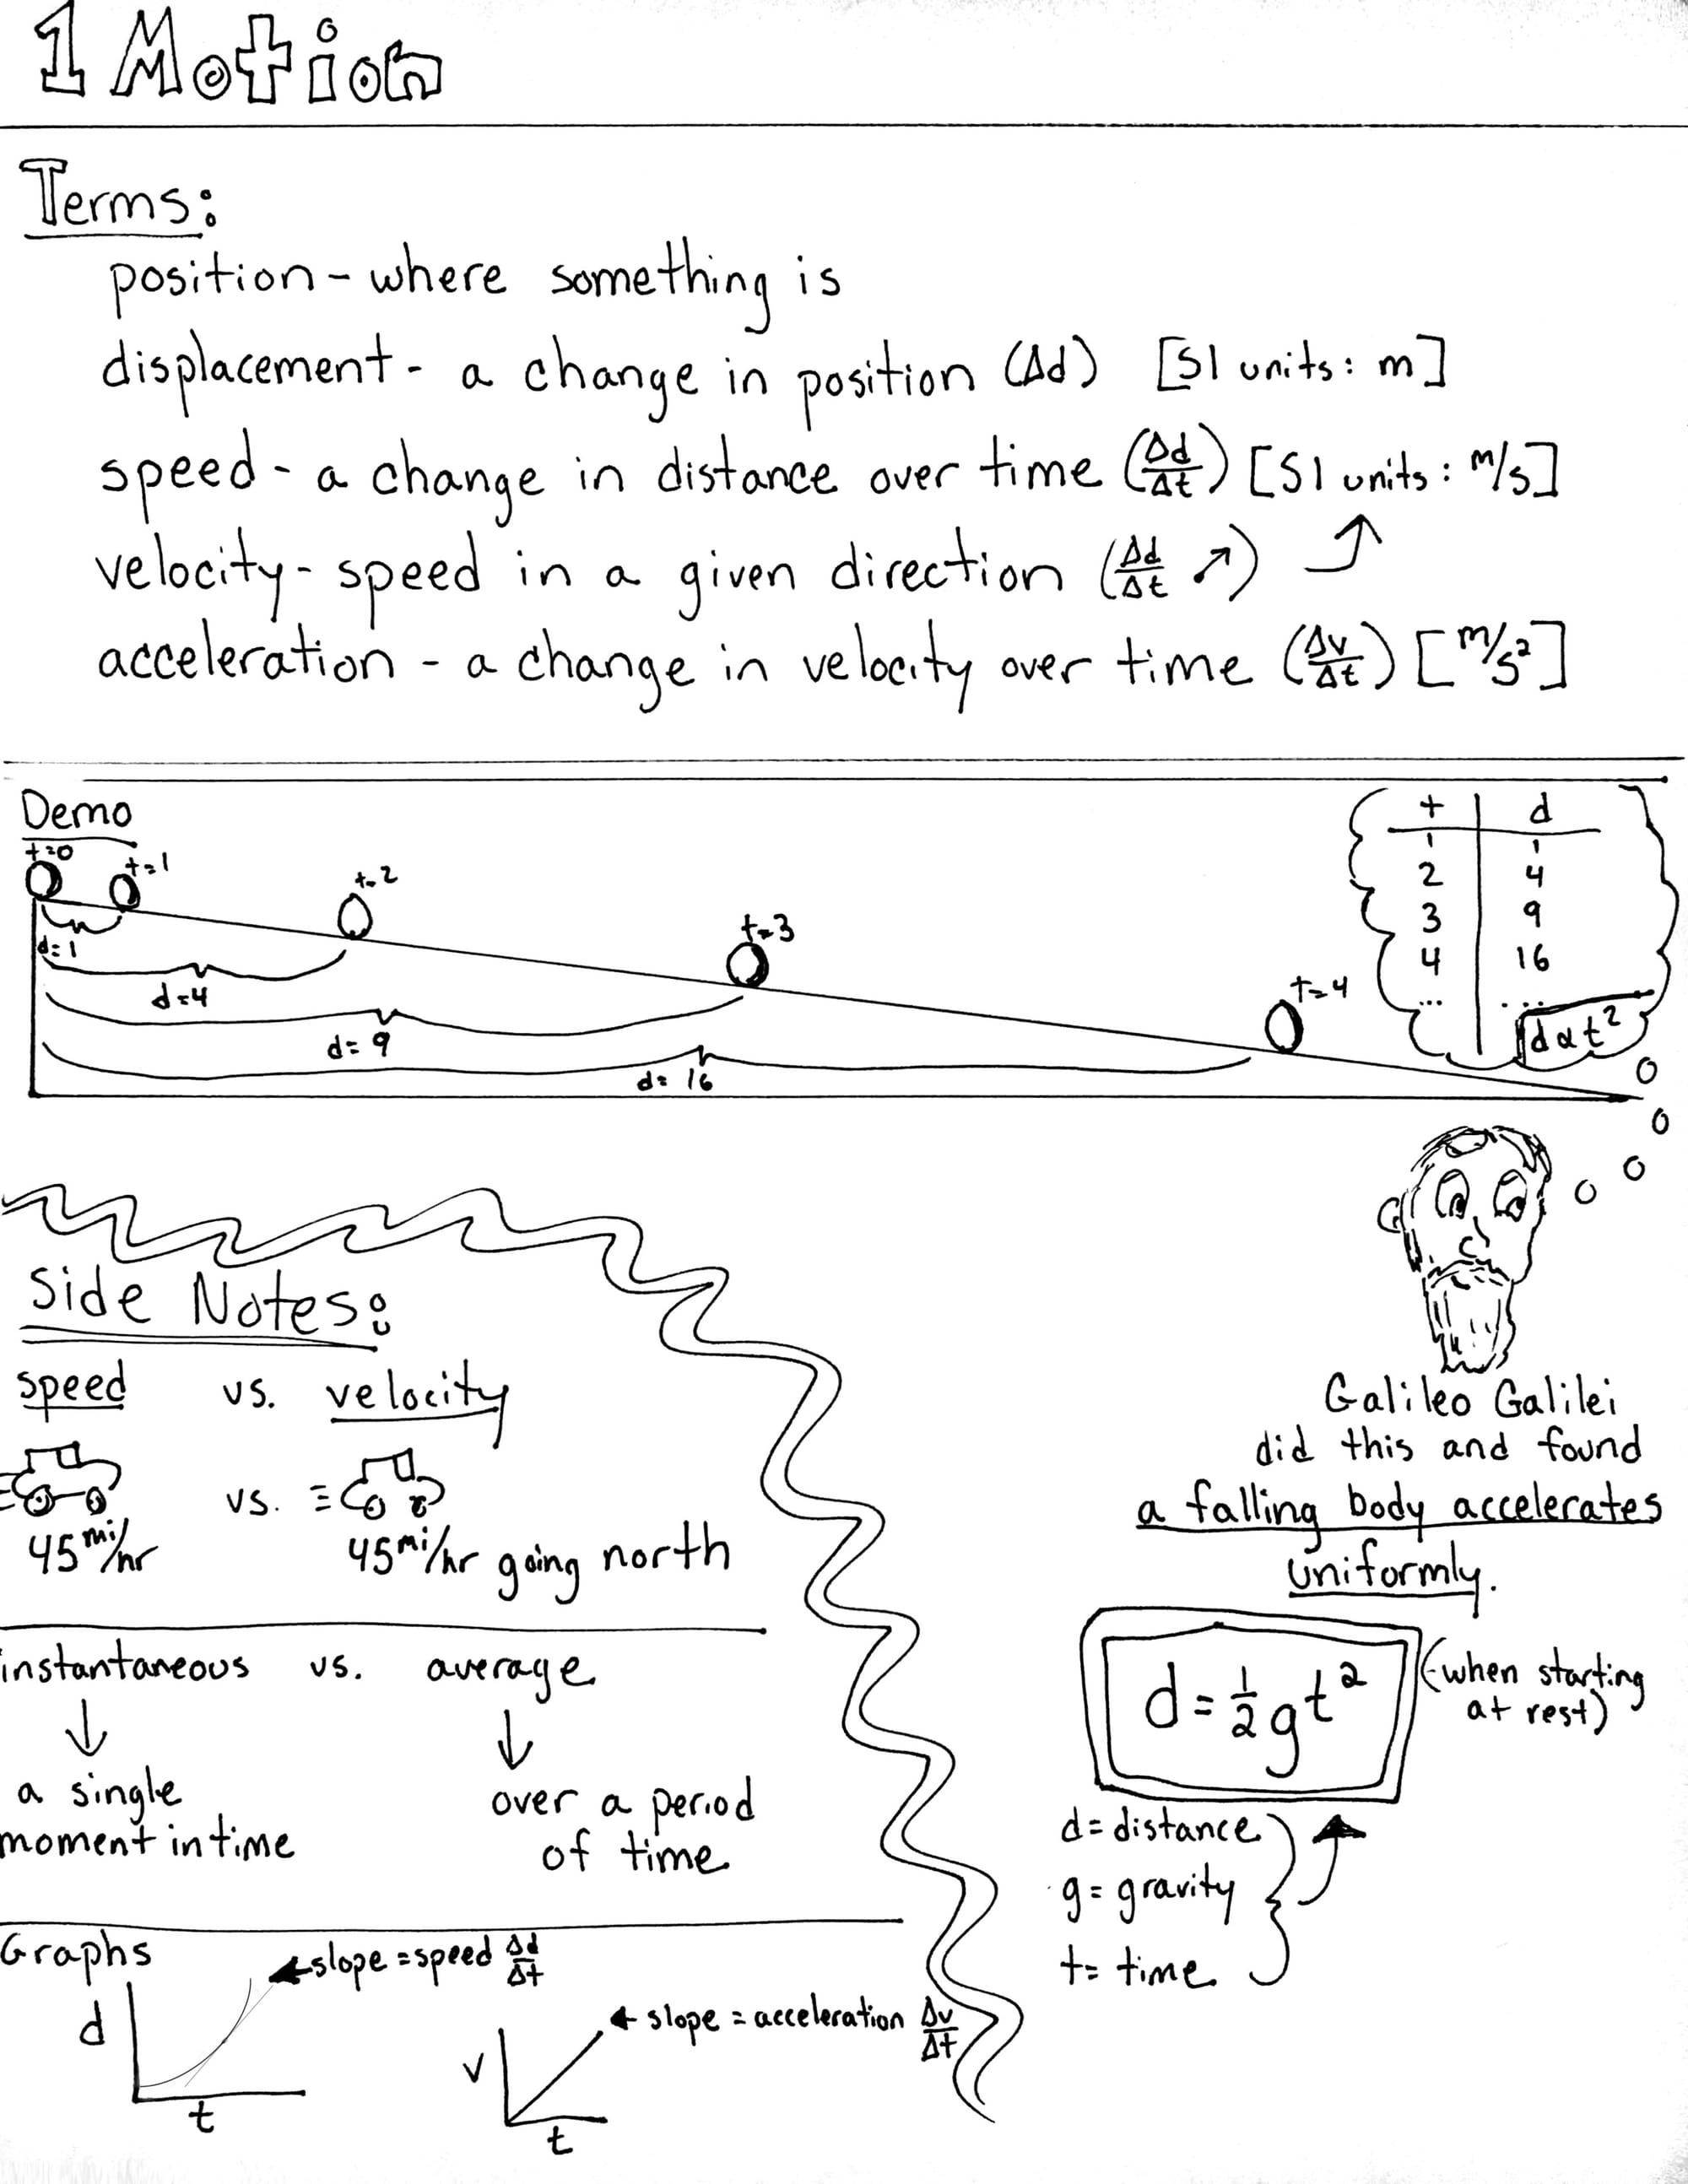 1 Motion
Terms:
position - where something is
displacement - a change in position (Δd) [SI units: m]
speed - a change in distance over time (Δd/Δt) [SI units: m/s]
velocity - speed in a given direction (Δd/Δt ↗)
acceleration - a change in velocity over time (Δv/Δt) [m/s²]
Demo
t=0
t=1
t=2
t=3
t=4
d=1
d=4
d=9
d=16
t d
1 1
2 4
3 9
4 16
... ...
d α t²
Galileo Galilei
did this and found
a falling body accelerates
uniformly.
d = ½gt²
(when starting
at rest)
d = distance
g = gravity
t = time
Side Notes:
speed vs. velocity
vs.
45 mi/hr 45 mi/hr going north
instantaneous vs. average
a single
moment in time
over a period
of time
Graphs
slope = speed Δd/Δt
d
t
slope = acceleration Δv/Δt
v
t